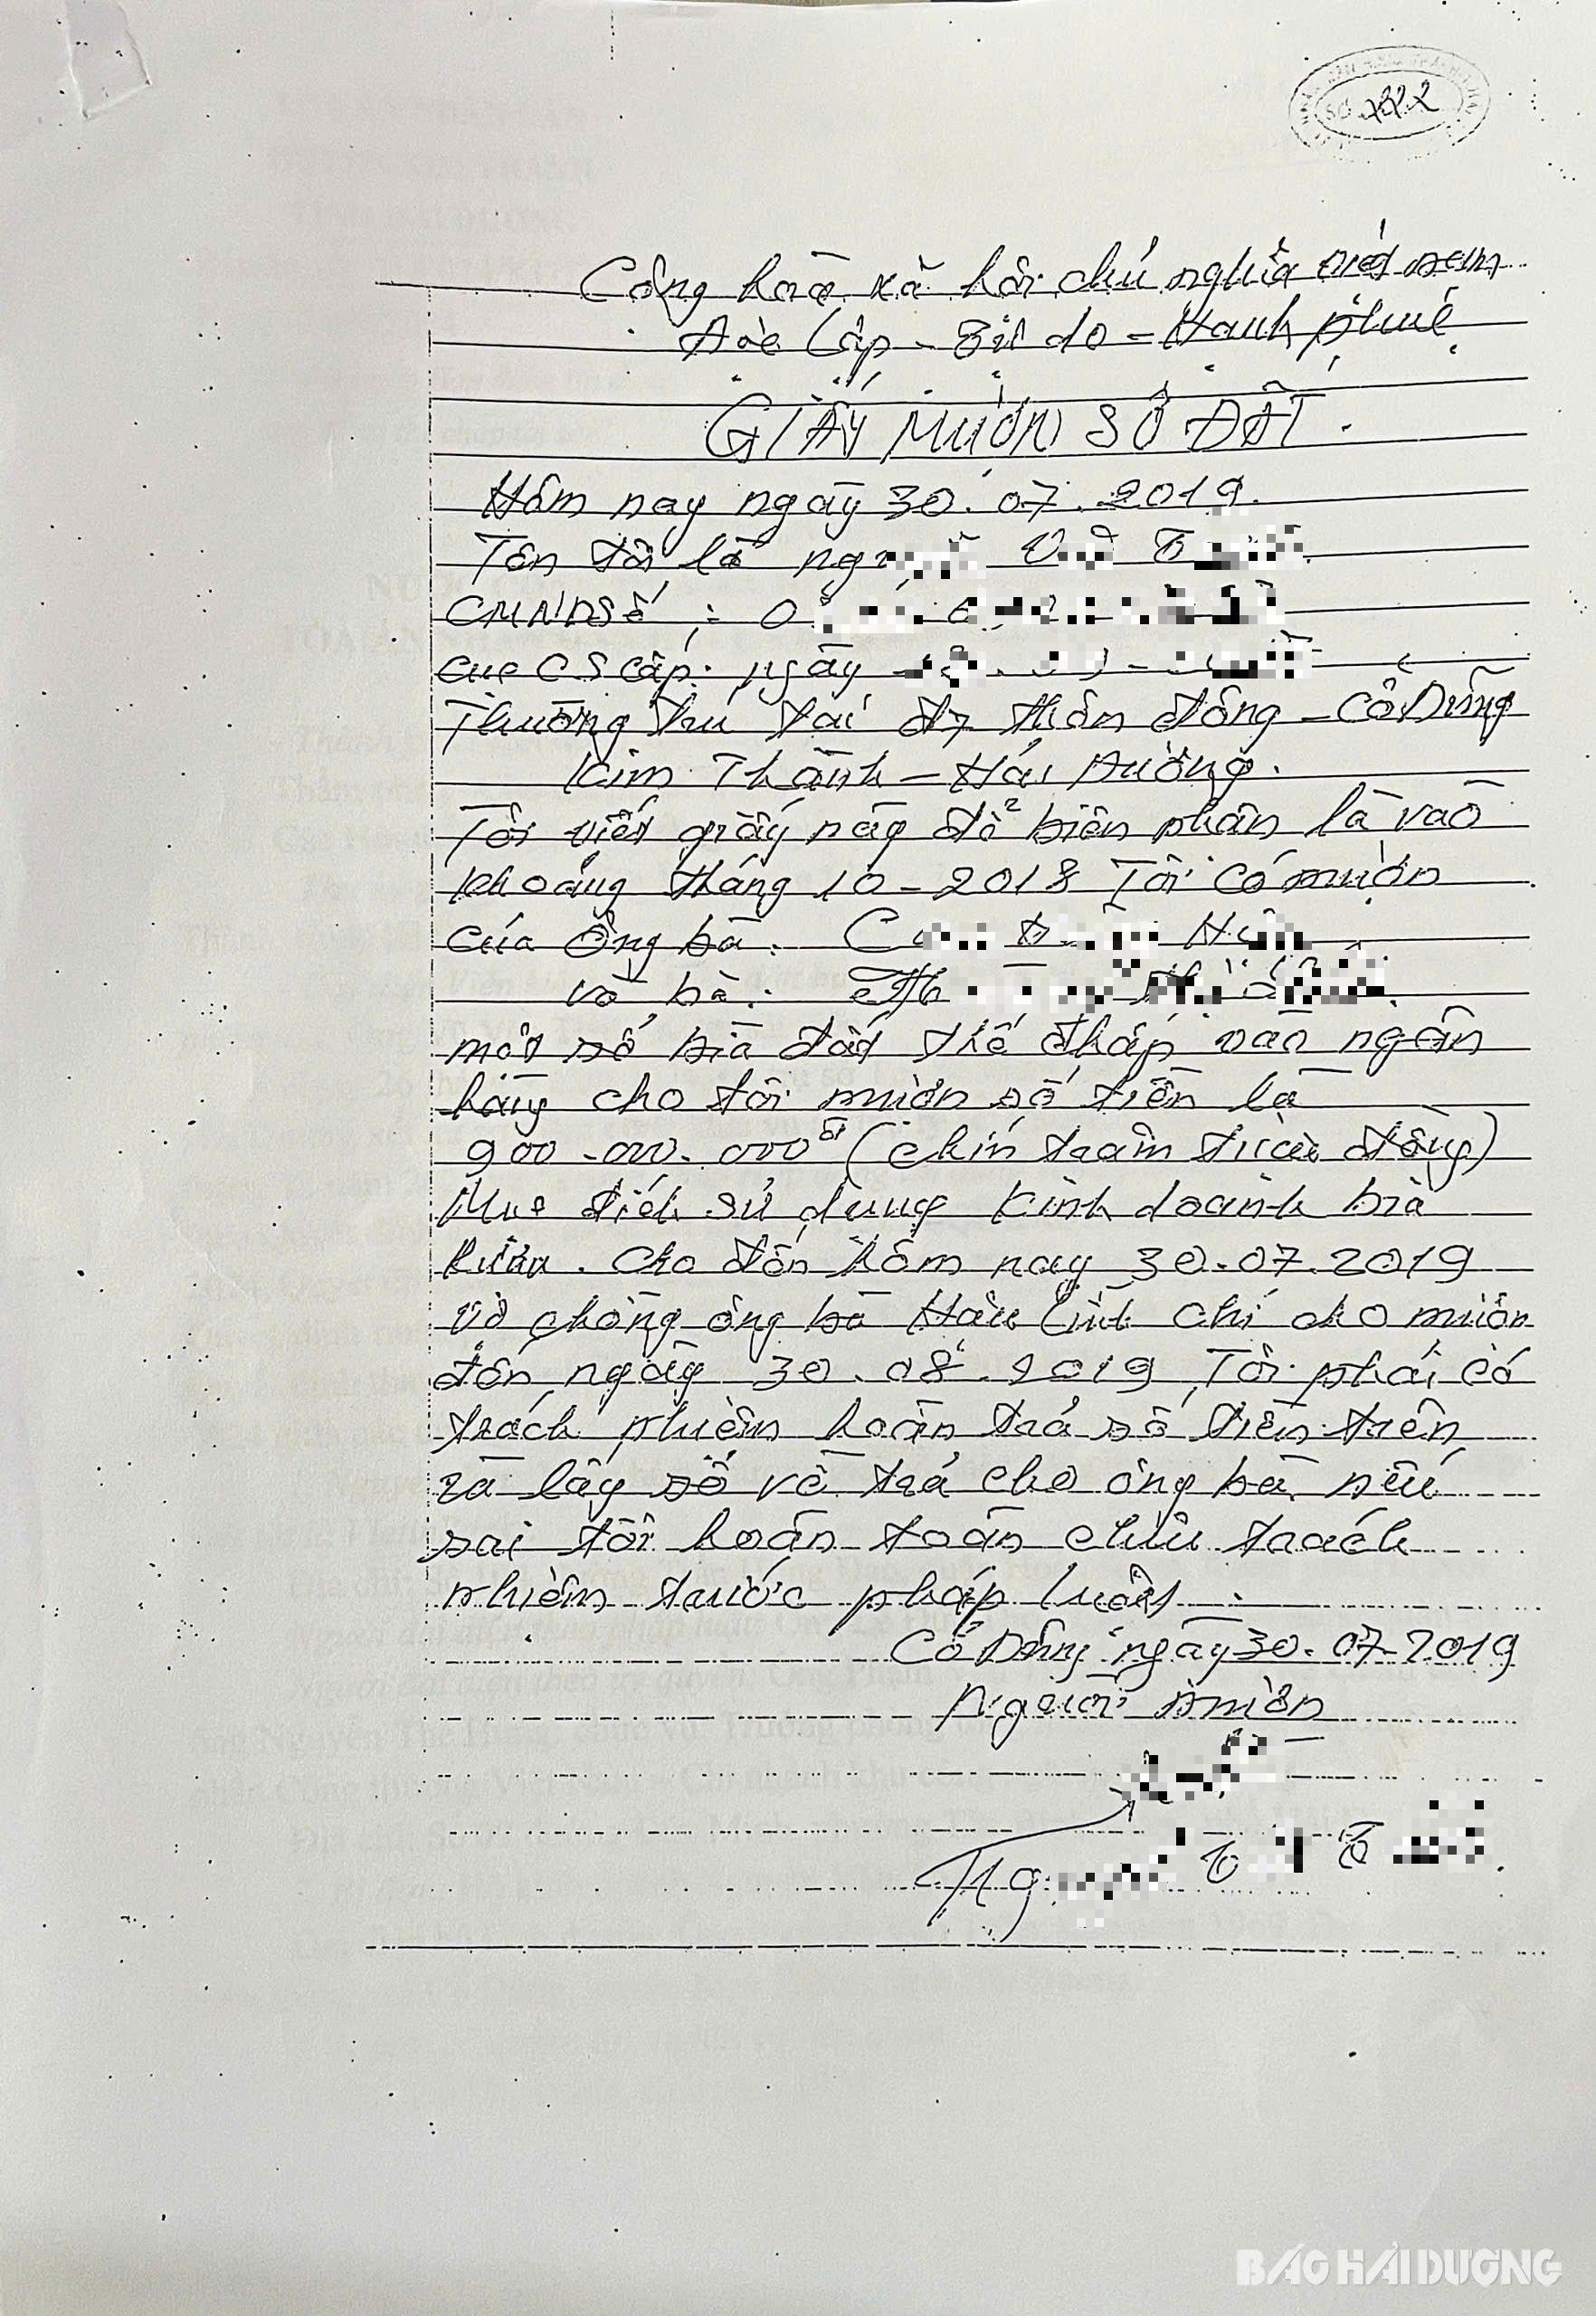 Số 222
Cộng hoà xã hội chủ nghĩa việt nam
Độc lập - Tự do - Hạnh phúc
GIẤY MƯỢN SỔ ĐẤT.
Hôm nay ngày 30.07.2019.
Tên tôi là
CMNDSố : 0
cục CS cấp. ngày
Thường trú tại đ7 thôn đông - Cổ Dũng
Kim Thành - Hải Dương.
Tôi viết giấy này để biên nhận là vào
khoảng tháng 10 - 2018 Tôi có mượn
của ông bà.
và bà:
một số bìa đất thế chấp vào ngân
hàng cho tôi mượn số tiền là
900.000.000đ (chín trăm triệu đồng)
Mục đích sử dụng kinh doanh bia
rượu. Cho đến hôm nay 30.07.2019
vợ chồng ông bà Hậu chỉ cho mượn
đến ngày 30.08.2019 Tôi phải có
trách nhiệm hoàn trả số tiền trên
và lấy sổ về trả cho ông bà nếu
sai tôi hoàn toàn chịu trách
nhiệm trước pháp luật.
Cổ Dũng ngày 30.07-2019
Người mượn
BÁO HẢI DƯƠNG